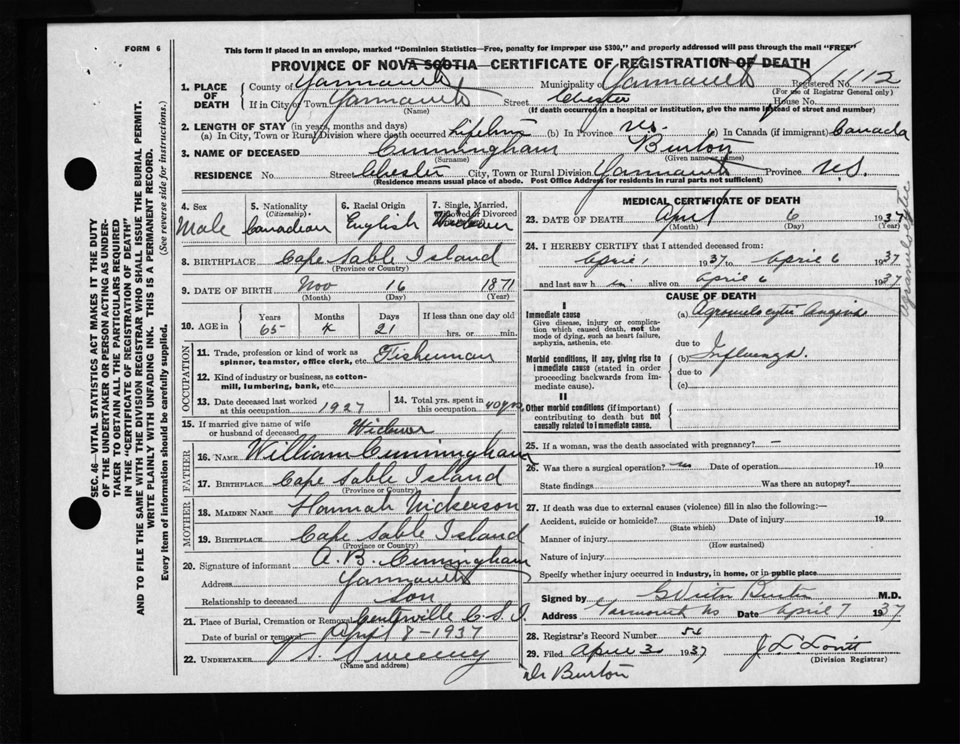 FORM 6
This form if placed in an envelope, marked "Dominion Statistics—Free, penalty for improper use $300," and properly addressed will pass through the mail "FREE"
PROVINCE OF NOVA SCOTIA—CERTIFICATE OF REGISTRATION OF DEATH
1. PLACE OF DEATH County of Yarmouth Municipality of Yarmouth Registered No. 112
(For use of Registrar General only)
If in City or Town Yarmouth Street Chester House No.
(Name) (If death occurred in a hospital or institution, give the name instead of street and number)
2. LENGTH OF STAY (in years, months and days)
(a) In City, Town or Rural Division where death occurred Lifetime (b) In Province N.S. (c) In Canada (if immigrant) Canada
3. NAME OF DECEASED Cunningham Burton
(Surname) (Given name or names)
RESIDENCE No. Street Chester City, Town or Rural Division Yarmouth Province N.S.
(Residence means usual place of abode. Post Office Address for residents in rural parts not sufficient)
4. Sex Male
5. Nationality (Citizenship) Canadian
6. Racial Origin English
7. Single, Married, Widowed or Divorced Widower
8. BIRTHPLACE Cape Sable Island
(Province or Country)
9. DATE OF BIRTH Nov 16 1871
(Month) (Day) (Year)
10. AGE in Years Months Days If less than one day old
65 4 21 hrs. or min.
OCCUPATION
11. Trade, profession or kind of work as spinner, teamster, office clerk, etc. Fisherman
12. Kind of industry or business, as cotton-mill, lumbering, bank, etc.
13. Date deceased last worked at this occupation 1927
14. Total yrs. spent in this occupation 40 yrs
15. If married give name of wife or husband of deceased Widower
FATHER
16. NAME William Cunningham
17. BIRTHPLACE Cape Sable Island
(Province or Country)
MOTHER
18. MAIDEN NAME Hannah Nickerson
19. BIRTHPLACE Cape Sable Island
(Province or Country)
20. Signature of informant A. B. Cunningham
Address Yarmouth
Relationship to deceased Son
21. Place of Burial, Cremation or Removal Centreville C.S.I.
Date of burial or removal April 8 - 1937
22. UNDERTAKER Sweeny
(Name and address)
MEDICAL CERTIFICATE OF DEATH
23. DATE OF DEATH April 6 1937
(Month) (Day) (Year)
24. I HEREBY CERTIFY that I attended deceased from:
April 1 1937 to April 6 1937
and last saw h im alive on April 6 1937
CAUSE OF DEATH
I
Immediate cause
Give disease, injury or complication which caused death, not the mode of dying, such as heart failure, asphyxia, asthenia, etc.
(a) Agranulocytic Angina
due to
Morbid conditions, if any, giving rise to immediate cause (stated in order proceeding backwards from immediate cause).
(b) Influenza.
due to
(c)
II
Other morbid conditions (if important) contributing to death but not causally related to immediate cause.
25. If a woman, was the death associated with pregnancy? —
26. Was there a surgical operation? no Date of operation 19
State findings Was there an autopsy?
27. If death was due to external causes (violence) fill in also the following:—
Accident, suicide or homicide? Date of injury 19
(State which)
Manner of injury
(How sustained)
Nature of injury
Specify whether injury occurred in industry, in home, or in public place
Signed by M.D.
Address Yarmouth NS Date April 7 1937
28. Registrar's Record Number
29. Filed April 1937 J L Lovitt
(Division Registrar)
Dr Burton
Agranulocytic
SEC. 46—VITAL STATISTICS ACT MAKES IT THE DUTY
OF THE UNDERTAKER OR PERSON ACTING AS UNDERTAKER TO OBTAIN ALL THE PARTICULARS REQUIRED
IN THE "CERTIFICATE OF REGISTRATION OF DEATH"
AND TO FILE THE SAME WITH THE DIVISION REGISTRAR WHO SHALL ISSUE THE BURIAL PERMIT.
WRITE PLAINLY WITH UNFADING INK. THIS IS A PERMANENT RECORD.
Every item of information should be carefully supplied. (See reverse side for instructions.)